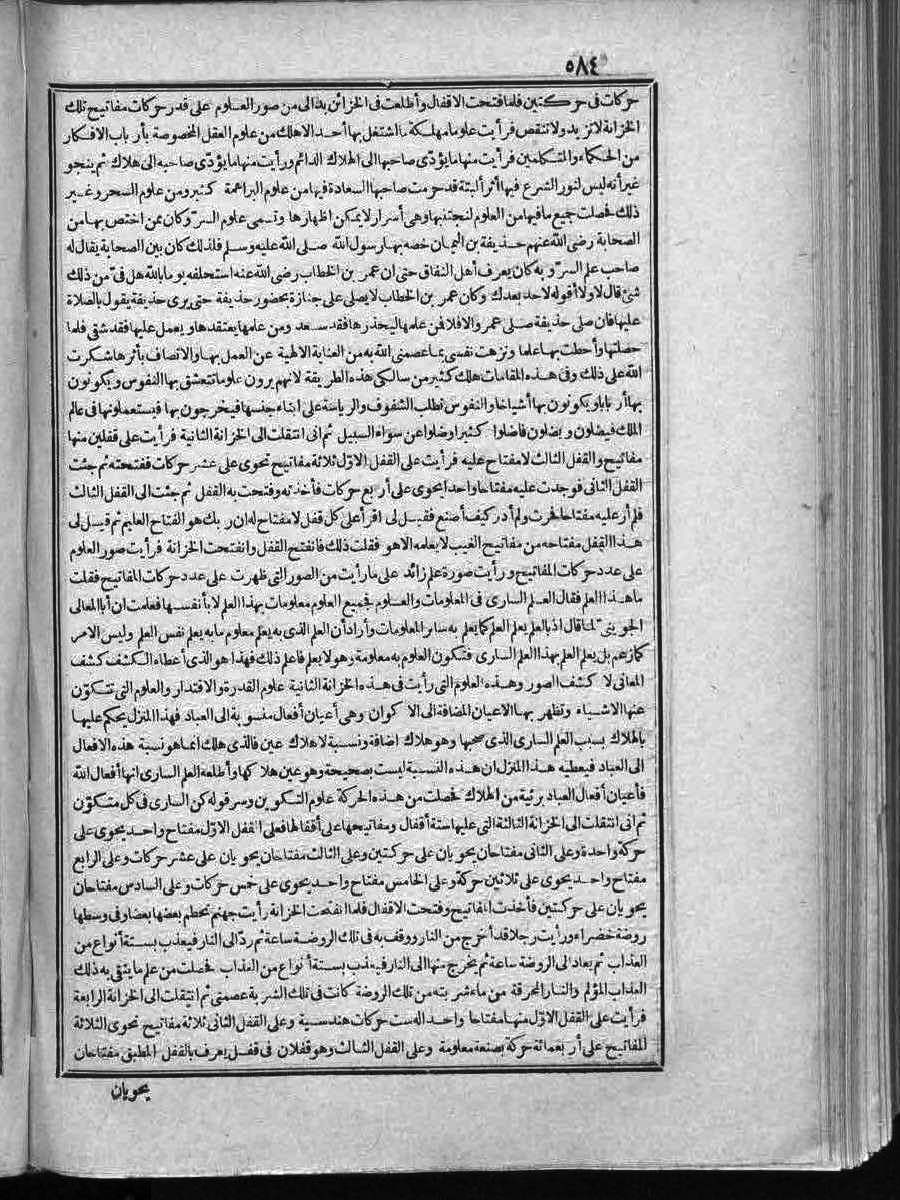 ٥٨٤
حركات في حركتين فلما فتحت الاقفال وأطلعت في الخزائن بدا لى من صور العلوم على قدر حركات مفاتيح تلك
الخزانة لا تزيد ولا تنقص فرأيت علوما مهلكة ما اشتغل بها أحد الاهلك من علوم العقل المخصوصة بأرباب الافكار
من الحكماء والمتكلمين فرأيت منها ما يؤدّى صاحبها الى الهلاك الدائم ورأيت منها ما يؤدّى صاحبه الى هلاك ثم ينجو
غير أنه ليس لنور الشرع فيها أثر ألبتة قد حرمت صاحبها السعادة فيها من علوم البراهمة كثير ومن علوم السحر وغير
ذلك فحصلت جميع ما فيها من العلوم لنجتنبها وهى أسرار لا يمكن اظهارها وتسمى علوم السرّ وكان ممن اختص بها من
الصحابة رضى الله عنهم حذيفة بن اليمان خصه بها رسول الله صلى الله عليه وسلم فلذلك كان بين الصحابة يقال له
صاحب علم السرّ وبه كان يعرف أهل النفاق حتى ان عمر بن الخطاب رضى الله عنه استحلفه يوما بالله هل فىّ من ذلك
شئ قال لا ولا أقوله لاحد بعدك وكان عمر بن الخطاب لا يصلى على جنازة بحضور حذيفة حتى يرى حذيفة يقول بالصلاة
عليها فان صلى حذيفة صلى عمر والا فلا فمن علمها ليحذرها فقد سعد ومن علمها يعتقدها ويعمل عليها فقد شقى فلما
حصلتها وأحطت بها علما ونزهت نفسى بما عصمنى الله به من العناية الالهية عن العمل بها والاتصاف بأثرها شكرت
الله على ذلك وفى هذه المقامات هلك كثير من سالكى هذه الطريقة لانهم يرون علوما تتعشق بها النفوس ويكونون
بها أربابا ويكونون بها أشياخا والنفوس تطلب الشفوف والرياسة على ابناء جنسها فيخرجون بها فيستعملونها فى عالم
الملك فيضلون ويضلون فاضلوا كثيرا وضلوا عن سواء السبيل ثم انى انتقلت الى الخزانة الثانية فرأيت على قفلين منها
مفاتيح والقفل الثالث لا مفتاح عليه فرأيت على القفل الاوّل ثلاثة مفاتيح تحوى على عشر حركات ففتحته ثم جئت
القفل الثانى فوجدت عليه مفتاحا واحدا يحوى على أربع حركات فأخذته وفتحت به القفل ثم جئت الى القفل الثالث
فلم أر عليه مفتاحا فحرت ولم أدر كيف أصنع فقيل لى اقرأ على كل قفل لا مفتاح له ان ربك هو الفتاح العليم ثم قيل لى
هذا القفل مفتاحه من مفاتيح الغيب لا يعلمه الا هو فقلت ذلك فانفتح القفل وانفتحت الخزانة فرأيت صور العلوم
على عدد حركات المفاتيح ورأيت صورة علم زائد على ما رأيت من الصور التى ظهرت على عدد حركات المفاتيح فقلت
ما هذا العلم فقال العلم السارى فى المعلومات والعلوم فجميع العلوم معلومات بهذا العلم لا بأنفسها فعلمت ان أبا المعالى
الجوينى لما قال اذ بالعلم يعلم العلم كما يعلم به سائر المعلومات وأراد أن العلم الذى به يعلم معلوم ما به يعلم نفس العلم وليس الامر
كما زعم بل يعلم العلم بهذا العلم السارى فتكون العلوم به معلومة وهو لا يعلم فاعلم ذلك فهذا هو الذى أعطاه الكشف كشف
المعانى لا كشف الصور وهذه العلوم التى رأيت فى هذه الخزانة الثانية علوم القدرة والاقتدار والعلوم التى تتكوّن
عنها الاشياء وتظهر بها الاعيان المضافة الى الاكوان وهى أعيان أفعال منسوبة الى العباد فهذا المنزل يحكم عليها
بالهلاك بسبب العلم السارى الذى صحبها وهو هلاك اضافة ونسبة لا هلاك عين فالذى هلك انما هو نسبة هذه الافعال
الى العباد فيعطيه هذا المنزل ان هذه النسبة ليست بصحيحة وهو عين هلاكها وأطلعه العلم السارى انها أفعال الله
فأعيان أفعال العباد برئية من الهلاك فحصلت من هذه الحركة علوم التكوين وسر قوله كن السارى فى كل متكوّن
ثم انى انتقلت الى الخزانة الثالثة التى عليها ستة أقفال ومفاتيحها على أقفالها فعلى القفل الاوّل مفتاح واحد يحوى على
حركة واحدة وعلى الثانى مفتاحان يحويان على حركتين وعلى الثالث مفتاحان يحويان على عشر حركات وعلى الرابع
مفتاح واحد يحوى على ثلاثين حركة وعلى الخامس مفتاح واحد يحوى على خمس حركات وعلى السادس مفتاحان
يحويان على حركتين فأخذت المفاتيح وفتحت الاقفال فلما انفتحت الخزانة رأيت جهنم يحطم بعضها بعضا وفى وسطها
روضة خضراء ورأيت رجلا قد أخرج من النار ووقف به فى تلك الروضة ساعة ثم ردّ الى النار فيعذب بستة أنواع من
العذاب ثم يعاد الى الروضة ساعة ثم يخرج منها الى النار فيعذب بستة أنواع من العذاب فحصلت من علم ما يتقى به ذلك
العذاب المؤلم والنار المحرقة من ماء شربته من تلك الروضة كانت فى تلك الشربة عصمتى ثم انتقلت الى الخزانة الرابعة
فرأيت على القفل الاوّل منها مفتاحا واحد اله ست حركات هندسية وعلى القفل الثانى ثلاثة مفاتيح تحوى الثلاثة
المفاتيح على أربعمائة حركة بصنعة معلومة وعلى القفل الثالث وهو قفلان فى قفل يعرف بالقفل المطبق مفتاحان
يحويان